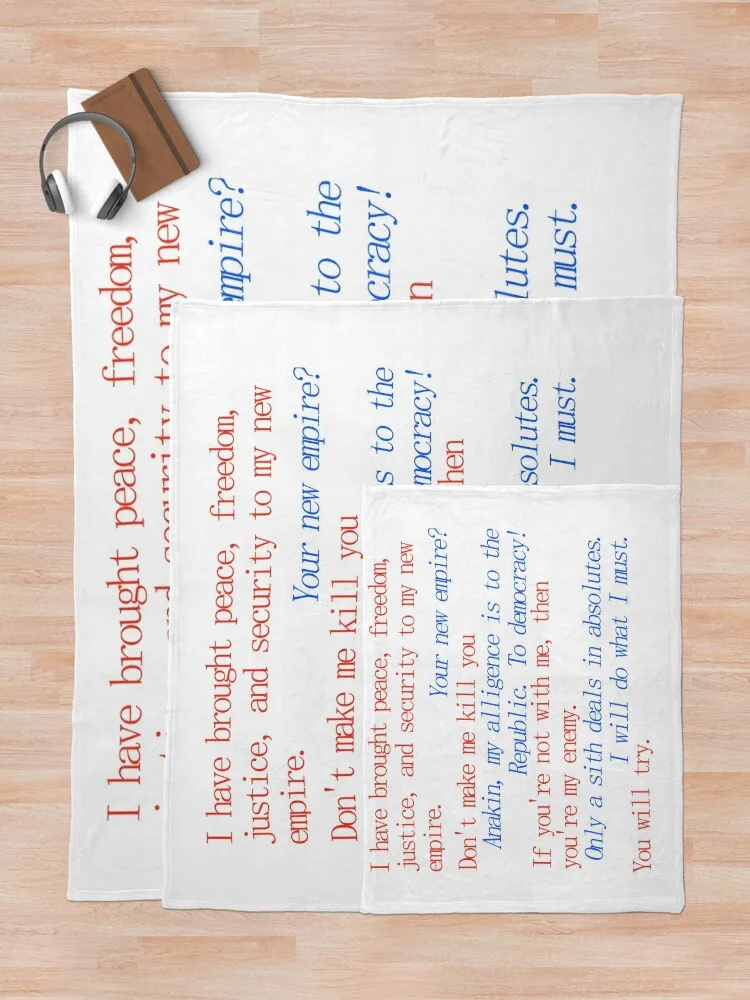 I have brought peace, freedom,
and security to my new
mpire?
to the
cracy!
n
lutes.
must.
I have brought peace, freedom,
justice, and security to my new
empire.
Your new empire?
Don't make me kill you
s to the
mocracy!
hen
solutes.
I must.
I have brought peace, freedom,
justice, and security to my new
empire.
Your new empire?
Don't make me kill you
Anakin, my alligence is to the
Republic. To democracy!
If you're not with me, then
you're my enemy.
Only a sith deals in absolutes.
I will do what I must.
You will try.